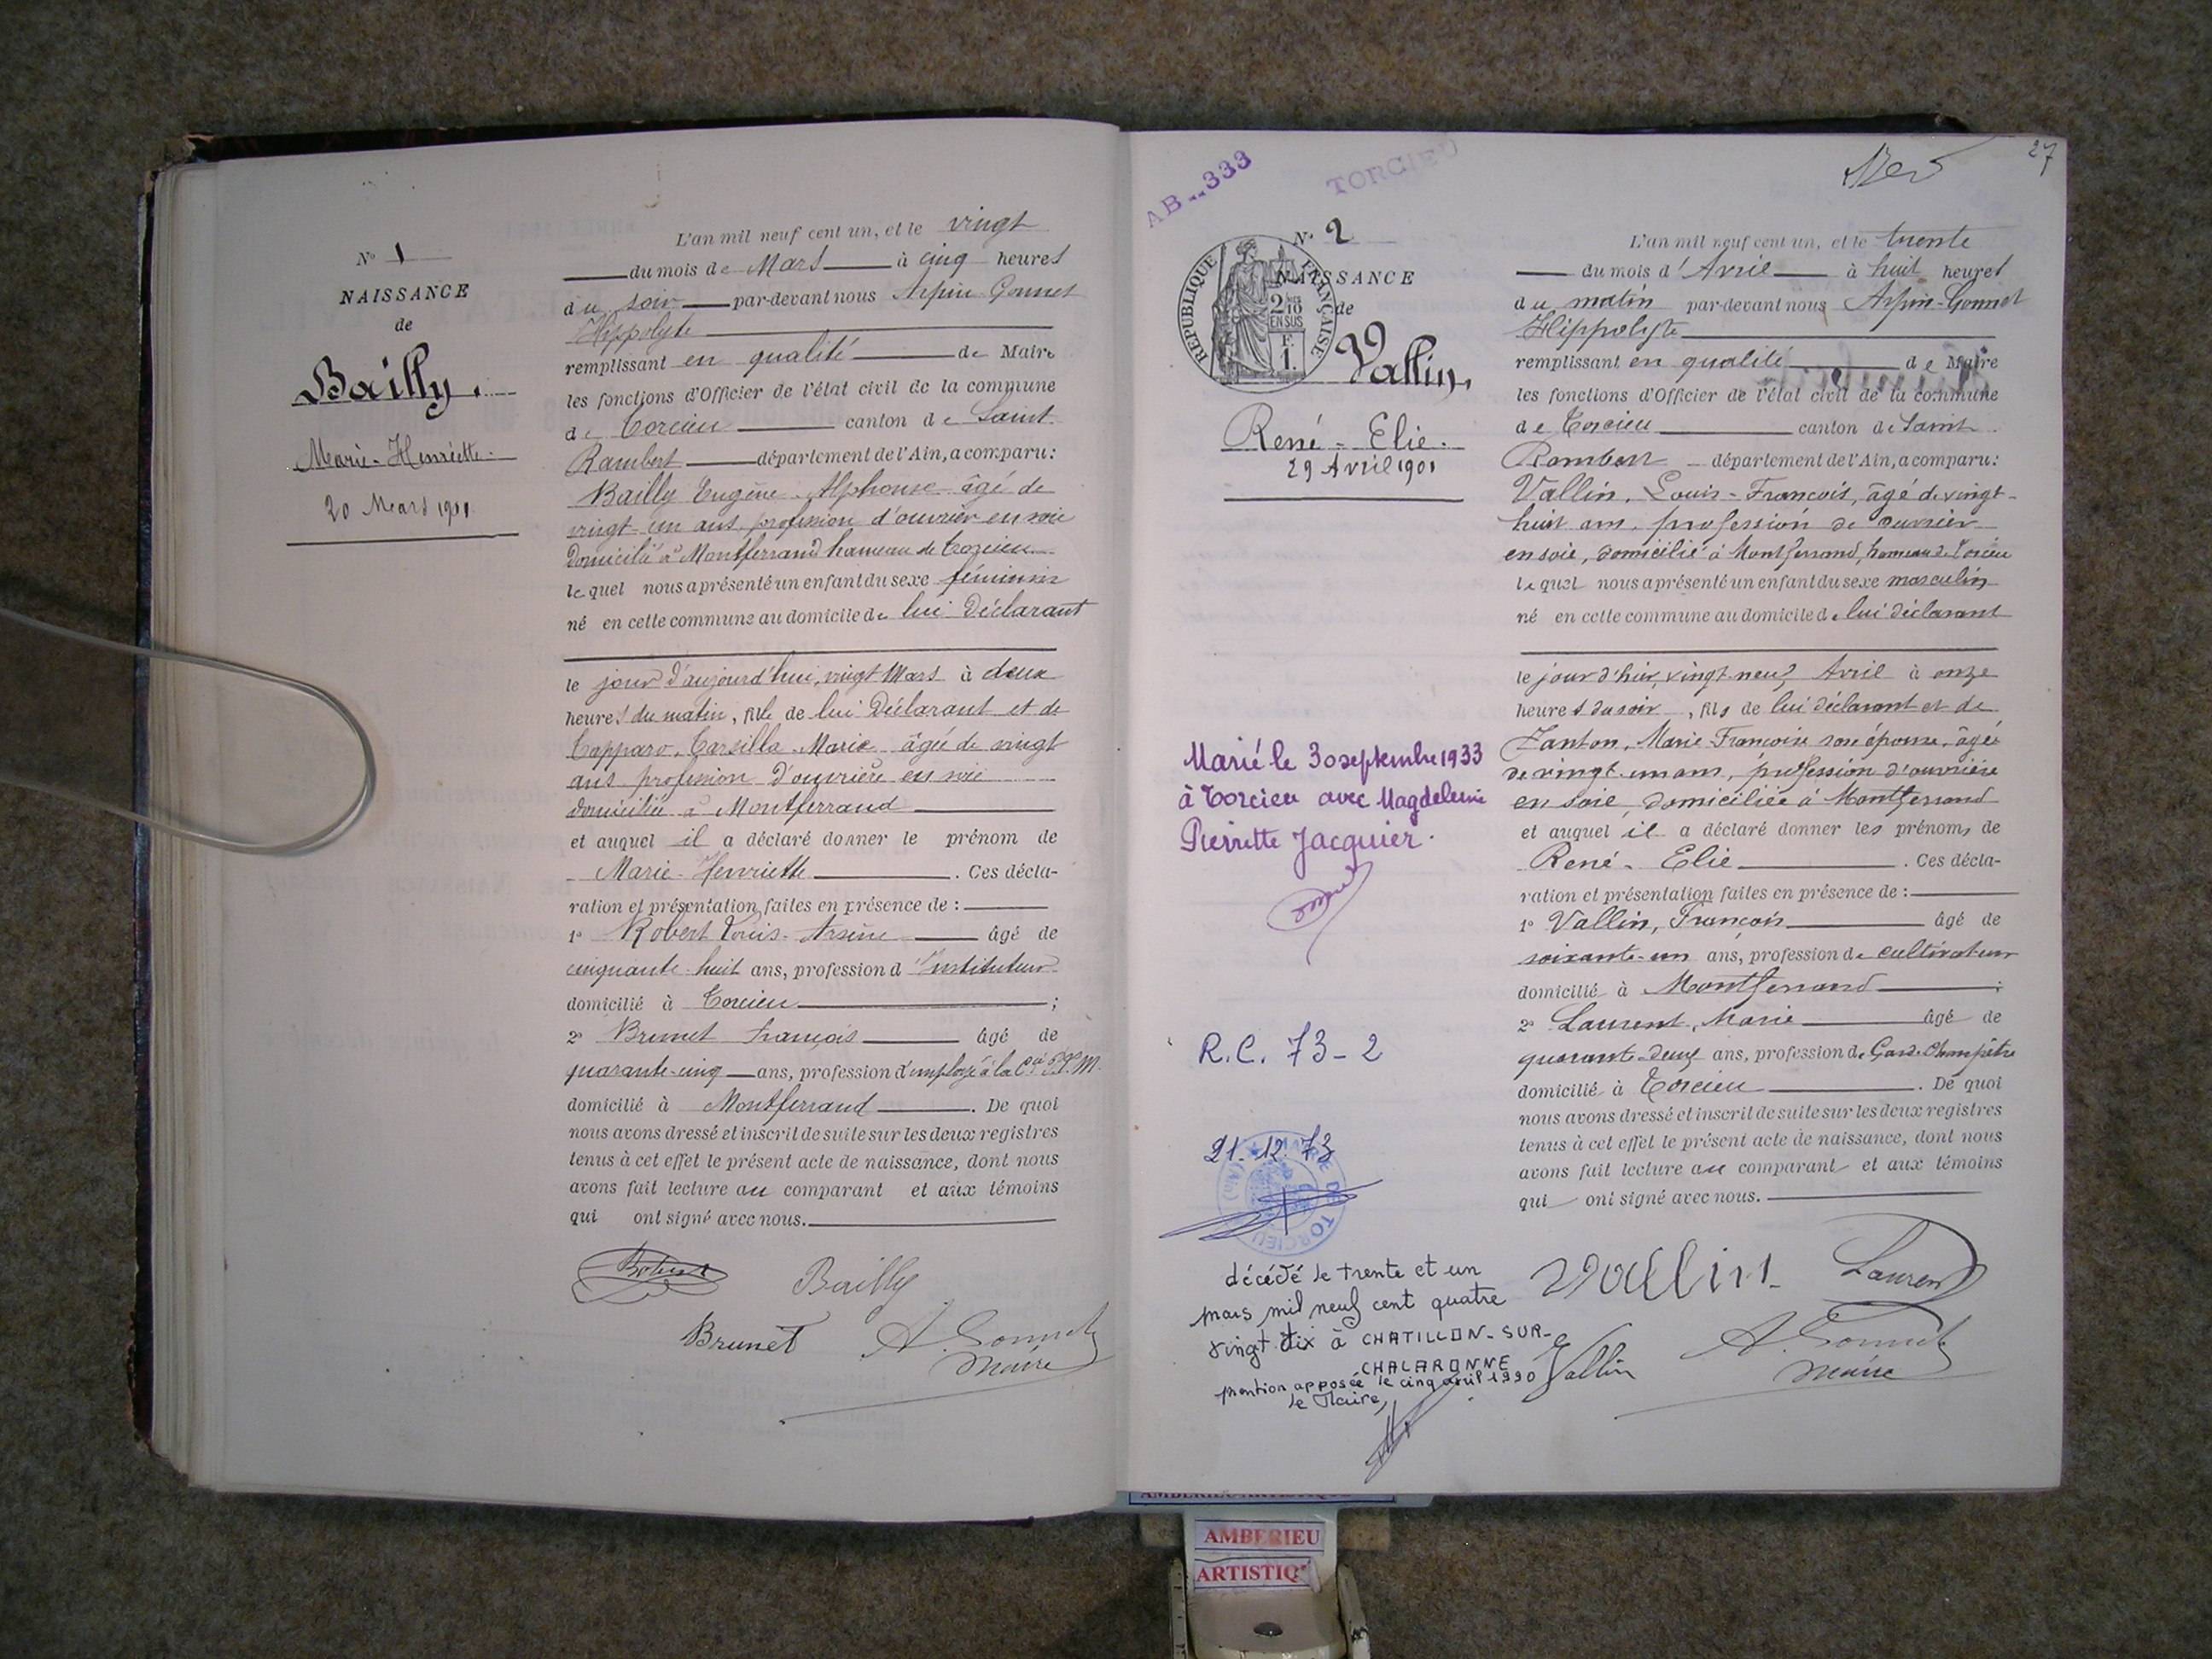 N° 1
NAISSANCE
de
Bailly.
Marie-Henriette.
20 Mars 1901
L'an mil neuf cent un, et le vingt
du mois de Mars à cinq heures
du soir par-devant nous Arpin-Gonnet
Hippolyte
remplissant en qualité de Maire
les fonctions d'Officier de l'état civil de la commune
de Torcieu canton de Saint
Rambert département de l'Ain, a comparu:
Bailly Eugène Alphonse âgé de
vingt un ans, profession d'ouvrier en soie
domicilié à Montferrand hameau de Torcieu
lequel nous a présenté un enfant du sexe féminin
né en cette commune au domicile de lui Déclarant
le jour d'aujourd'hui, vingt Mars à deux
heures du matin, fille de lui Déclarant et de
Tapparo, Tarsilla Marie âgée de vingt
ans profession d'ouvrière en soie
domiciliée à Montferrand
et auquel il a déclaré donner le prénom de
Marie-Henriette. Ces décla-
ration et présentation faites en présence de :
1° Robert Louis-Arsène âgé de
cinquante-huit ans, profession d'instituteur
domicilié à Torcieu ;
2° Brunet François âgé de
quarante-cinq ans, profession d'employé à la Cie P.L.M.
domicilié à Montferrand. De quoi
nous avons dressé et inscrit de suite sur les deux registres
tenus à cet effet le présent acte de naissance, dont nous
avons fait lecture au comparant et aux témoins
qui ont signé avec nous.
Robert Bailly
Brunet A. Gonnet
Maire
27
AB 333
TORCIEU
N° 2
NAISSANCE
de
RÉPUBLIQUE FRANÇAISE
2/10
EN SUS
F.
1.
Vallin,
René-Elie.
29 Avril 1901
Marié le 30 septembre 1933
à Torcieu avec Magdeleine
Pierrette Jacquier.
R.C. 73-2
21.12.73
MAIRIE DE TORCIEU
(Ain)
décédé le trente et un
mars mil neuf cent quatre
vingt dix à CHATILLON-SUR-
CHALARONNE
mention apposée le cinq avril 1990
le Maire,
L'an mil neuf cent un, et le trente
du mois d'Avril à huit heures
du matin par-devant nous Arpin-Gonnet
Hippolyte
remplissant en qualité de Maire
les fonctions d'Officier de l'état civil de la commune
de Torcieu canton de Saint
Rambert département de l'Ain, a comparu:
Vallin, Louis-François, âgé de vingt-
huit ans, profession de ouvrier
en soie, domicilié à Montferrand, hameau de Torcieu
lequel nous a présenté un enfant du sexe masculin
né en cette commune au domicile de lui déclarant
le jour d'hier, vingt-neuf Avril à onze
heures du soir, fils de lui déclarant et de
Zanton, Marie Françoise son épouse, âgée
de vingt-un ans, profession d'ouvrière
en soie, domiciliée à Montferrand
et auquel il a déclaré donner les prénoms de
René-Elie. Ces décla-
ration et présentation faites en présence de :
1° Vallin, François âgé de
soixante-un ans, profession de cultivateur
domicilié à Montferrand ;
2° Laurent, Marie âgé de
quarante-deux ans, profession de Garde-Champêtre
domicilié à Torcieu. De quoi
nous avons dressé et inscrit de suite sur les deux registres
tenus à cet effet le présent acte de naissance, dont nous
avons fait lecture au comparant et aux témoins
qui ont signé avec nous.
Vallin Laurent
Vallin A. Gonnet
Maire
AMBERIEU ARTISTIQUE
AMBERIEU
ARTISTIQ